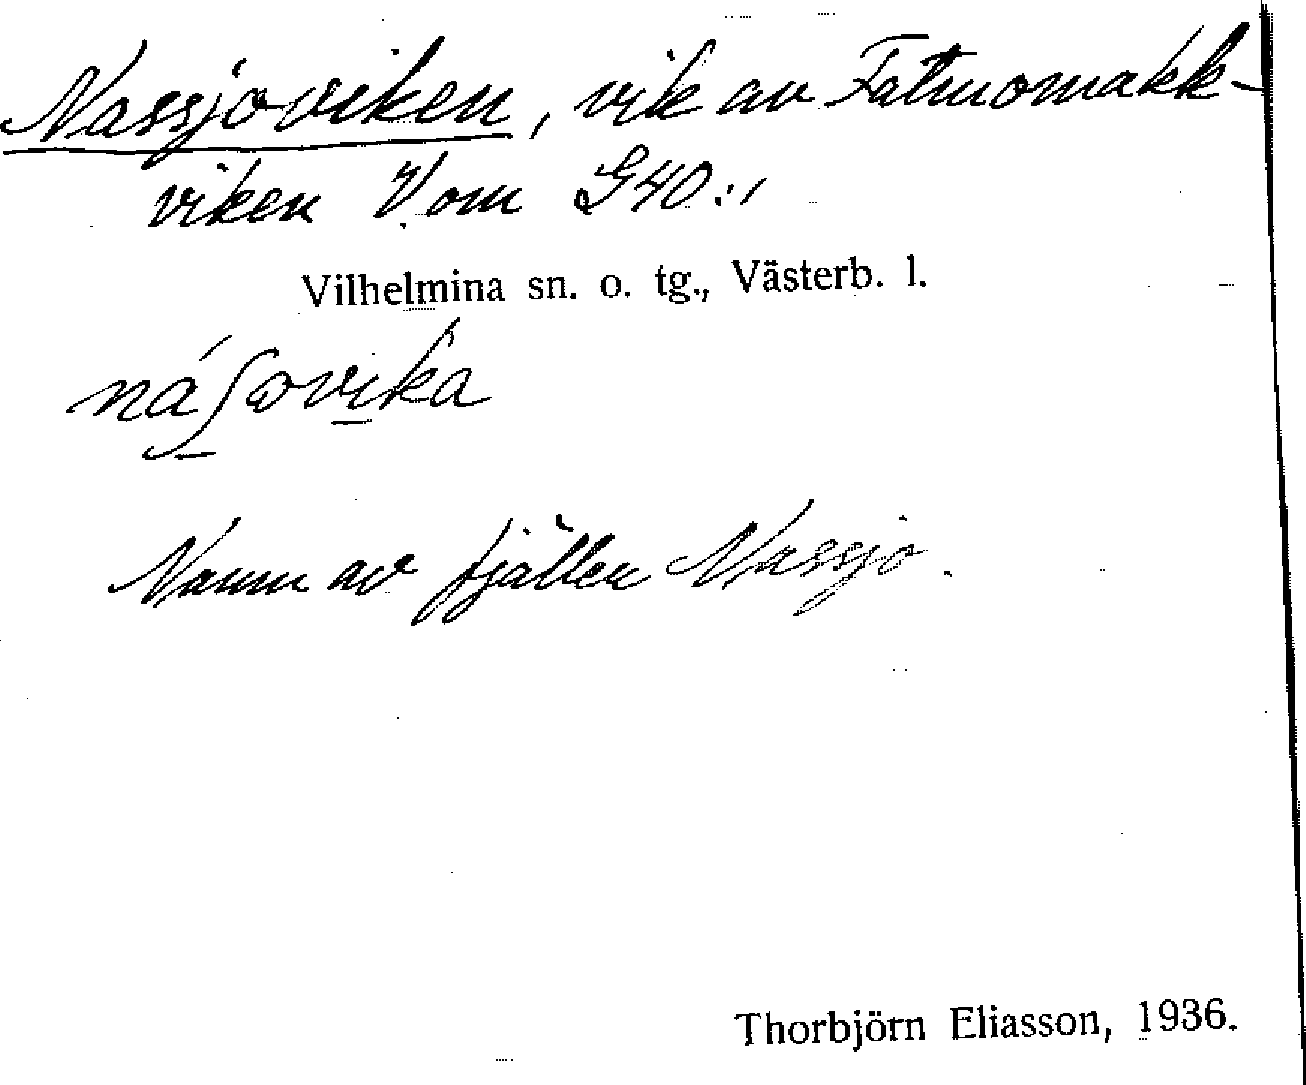 Nassjoviken, vik av Fatmomakk-
viken V om G40:1
Vilhelmina sn. o. tg., Västerb. l.
náʃɷvika
Namn av fjället Nassjo.
Thorbjörn Eliasson, 1936.